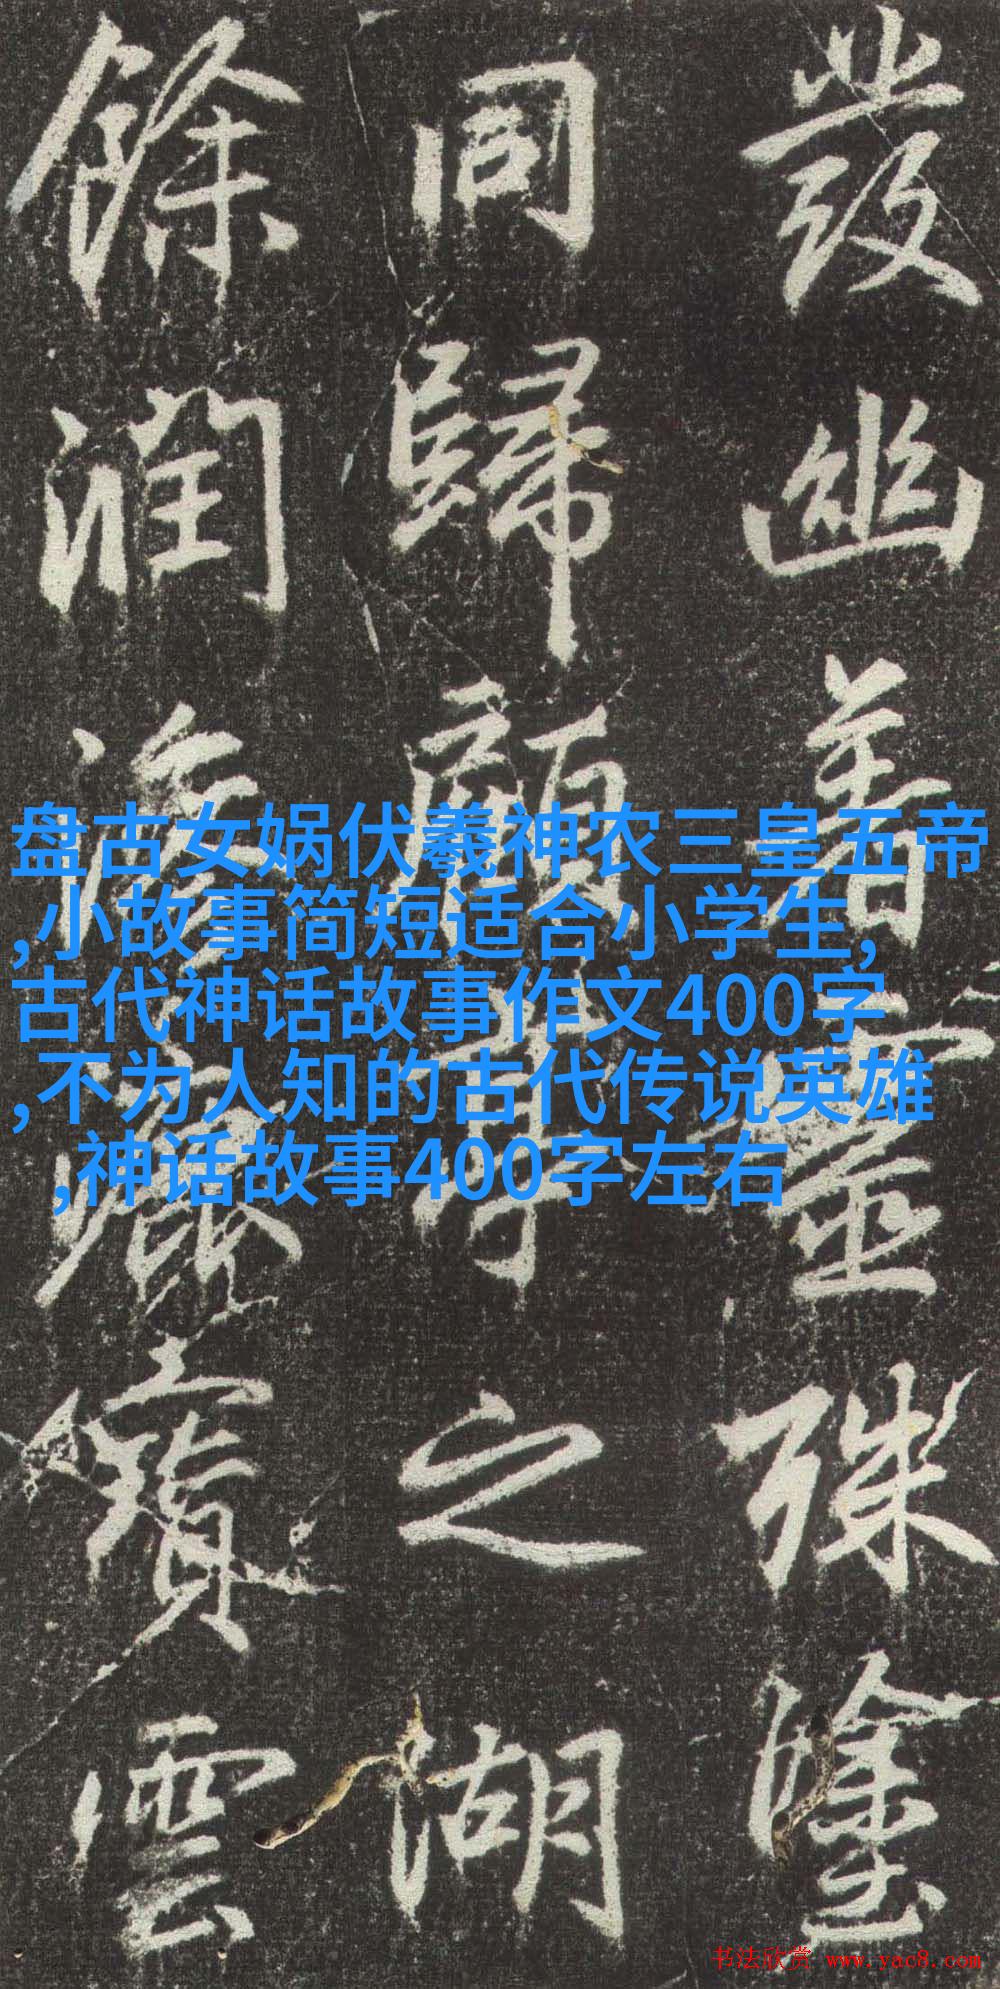 發幽靈殊
同歸顧之湖
餘潤雲
盘古女娲伏羲神农三皇五帝
,小故事简短适合小学生,
古代神话故事作文400字
,不为人知的古代传说英雄
,神话故事400字左右
书法欣赏 www.yac8.com